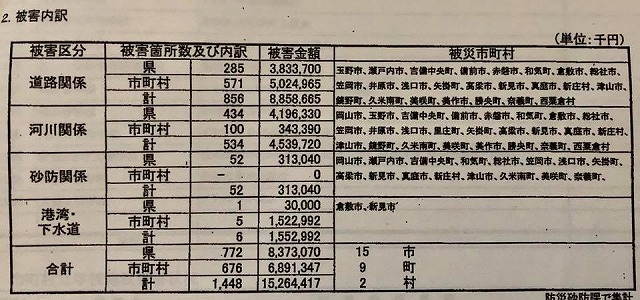 2. 被害内訳
(単位:千円)
被害区分 被害箇所数及び内訳 被害金額 被災市町村
道路関係
県 285 3,833,700 玉野市、瀬戸内市、吉備中央町、備前市、赤磐市、和気町、倉敷市、総社市、
市町村 571 5,024,965 笠岡市、井原市、浅口市、矢掛町、高梁市、新見市、真庭市、新庄村、津山市、
計 856 8,858,665 鏡野町、久米南町、美咲町、美作市、勝央町、奈義町、西粟倉村
河川関係
県 434 4,196,330 岡山市、玉野市、吉備中央町、備前市、赤磐市、和気町、倉敷市、総社市、
市町村 100 343,390 笠岡市、井原市、浅口市、里庄町、矢掛町、高梁市、新見市、真庭市、新庄村、
計 534 4,539,720 津山市、鏡野町、久米南町、美咲町、美作市、勝央町、奈義町、西粟倉村
砂防関係
県 52 313,040 岡山市、瀬戸内市、吉備中央町、和気町、総社市、笠岡市、浅口市、矢掛町、
市町村 － 0 高梁市、新見市、真庭市、新庄村、津山市、久米南町、美咲町、奈義町、
計 52 313,040
港湾・
下水道
県 1 30,000 倉敷市、新見市
市町村 5 1,522,992
計 6 1,552,992
合計
県 772 8,373,070 15 市
市町村 676 6,891,347 9 町
計 1,448 15,264,417 2 村
防災砂防課で集計